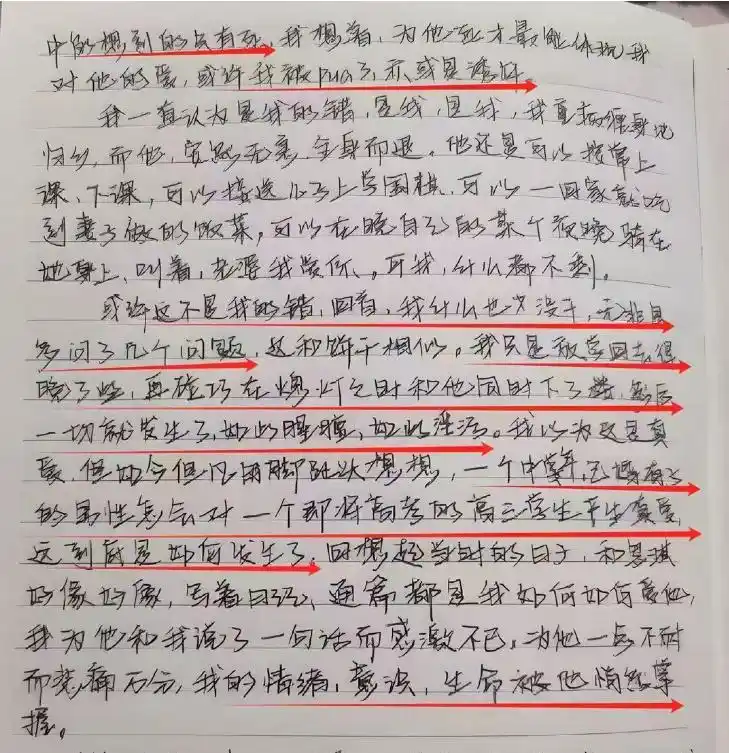 中的想到的只有死。我想着,为他死才最能体现我
对他的爱,或许我被pua了,亦或是活该。
我一直认为是我的错,是我,是我,我重
归乡,而他,安然无恙,全身而退。他还是可以按常上
课、下课,可以接送儿子上学围棋,可以一回家就吃
到妻子做的饭菜,可以在晚自习的某个夜晚骑在
她身上,叫着,老婆我爱你,可我,什么都不剩。
或许这不是我的错,回首,我什么也没干,无非是
多问了几个问题,这和饼干相似。我只是放学回去得
晚了些,再碰巧在熄灯之时和他同时下了楼,然后
一切就发生了,如此朦胧,如此
。我以为这是真
爱,但如今但凡用脚趾头想想,一个中年,已婚有子
的男性怎会对一个即将高考的高三学生产生真爱,
这到底是如何发生了。回想起当时的日子,和思琪
好像好像,写着日记,通篇都是我如何如何爱他,
我为他和我说了一句话而感激不已,为他一点不耐
而悲痛万分,我的情绪,意识,生命被他悄然掌
握。